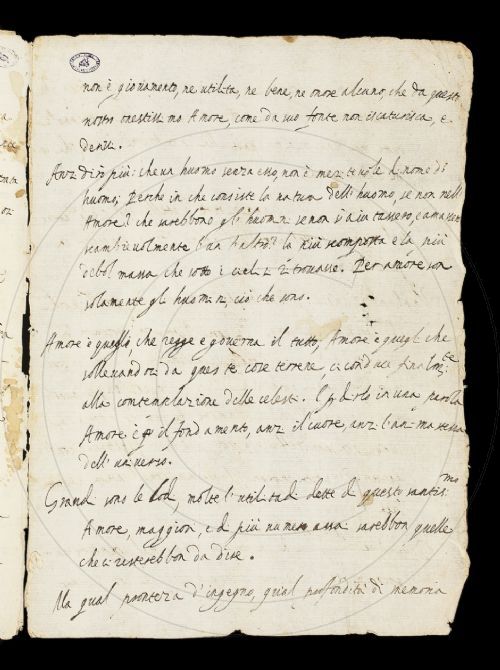 non è giovamento, ne utilità, ne bene, ne onore alcuno, che da questo
nostro onestissimo Amore, come da suo fonte non iscaturisca, e
derivi.
Anzi dirò più: che un huomo senza esso, non è meritevole del nome di
huomo; Perche in che consiste la natura dell' huomo, se non nell'
Amore? che sarebbono gli huomini se non s'aiutassero, e amassero
scambievolmente l'un l'altro? la più scomposta e la più
debol massa che sotto i cieli si trovasse. Per amore son
solamente gli huomini, ciò che sono.
Amore è quegli, che regge e governa il tutto, Amore è quegli che
sollevandoci da queste cose terrene, ci conduce finalmte
alla contemplazione delle celesti. E per dirlo in una parola
Amore è il fondamento, anzi il cuore, anzi l'anima stessa
dell' universo.
Grandi sono le lodi, molte l'utilitadi dette di questo santissmo
Amore, maggiori, e di più numero assai sarebbon quelle
che ci resterebbon da dire.
Ma qual prontezza d'ingegno, qual profondità di memoria